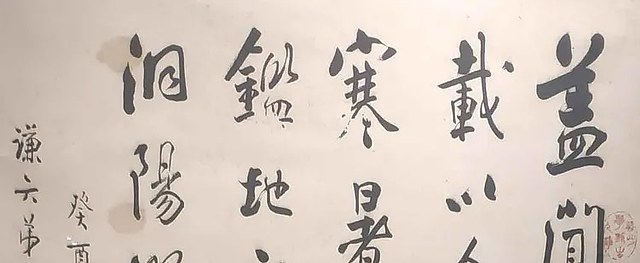 盖聞
載以
寒暑
鑑地
洞陽
癸酉
謙六弟